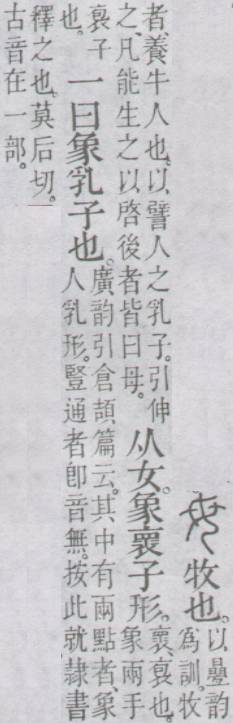 母 牧也。以曡韵
為訓。牧
者、養牛人也。以譬人之乳子。引伸
之、凡能生之以啓後者皆曰母。
从女。象褱子形。褱、袌也。
象兩手
褱子
也。
一曰象乳子也。廣韵引倉頡篇云。其中有兩點者、象
人乳形。豎通者卽音無。按此就隸書
釋之也。莫后切。
古音在一部。